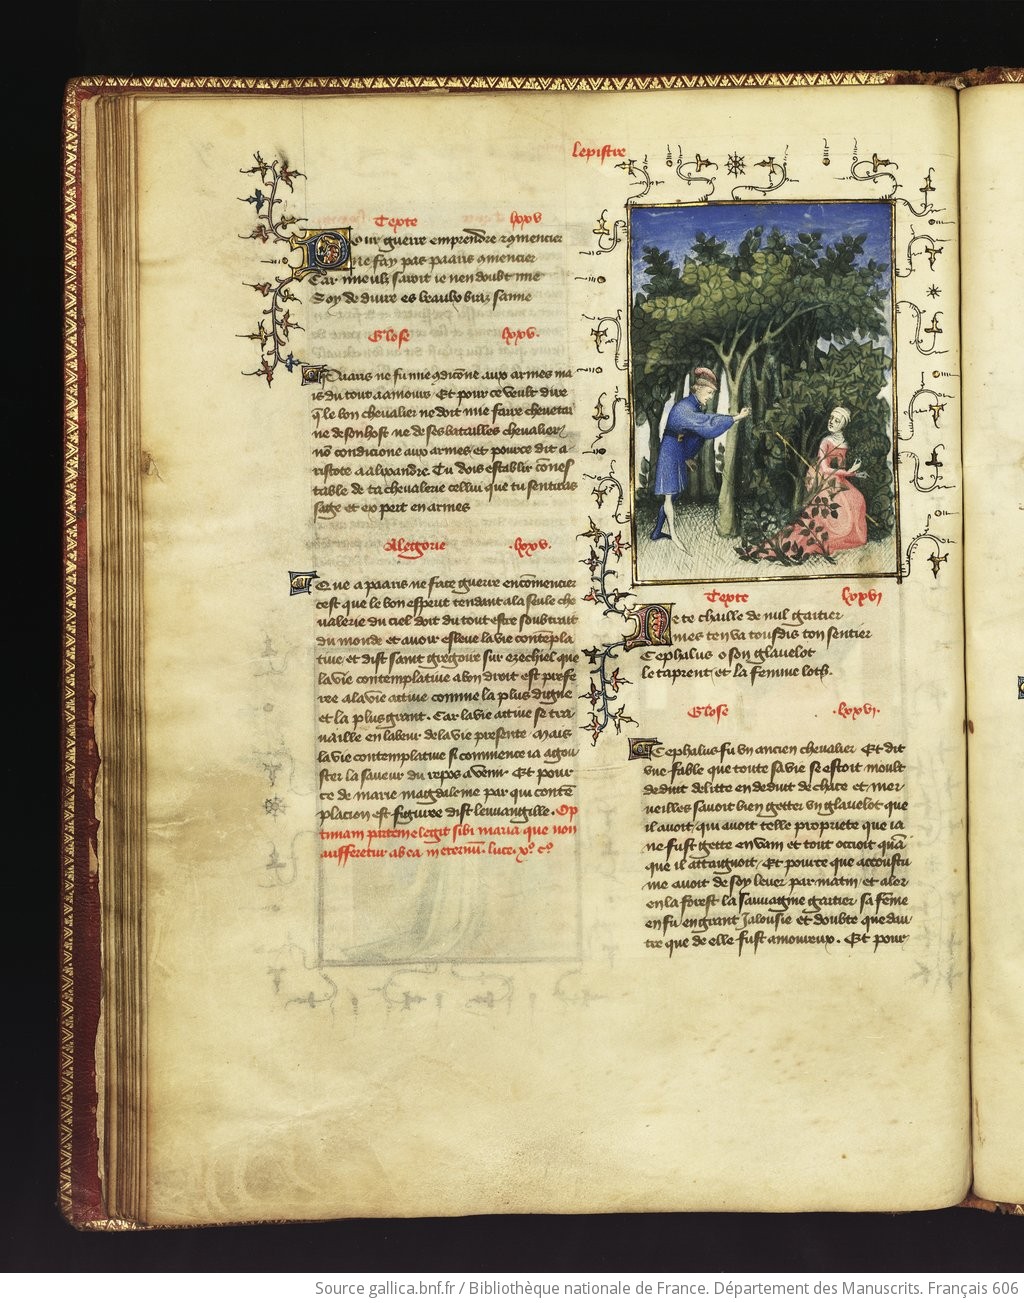 Lepistre
Texte lxxv
Pour guerre emprendre 9mencier
ne fay pas paaris 9mencier
Car mieulx saroit ie nen doubt mie
Soy deduire es beaulx braz samie
Glose lxxv.
Paaris ne fu mie 9dicōne aux armes ma
is du tout a amours Et pour ce veult dire
q̄ le bon chevalier ne doit mie faire chevetai
ne de son host ne de ses batailles chevalier
nō condicione aux armes et pource dit a
ristote a alixandre Tu dois establir cōnes
table de ta chevalerie cellui que tu sentiras
sage et expert en armes
Alegorie .lxxv.
Que a paaris ne face guerre encōmencier
cest que le bon esperit tendant a la seule che
valerie du ciel doit du tout estre soubtrait
du monde et avoir esleue la vie contempla
tiue et dist saint gregoire sur ezechiel que
la vie contemplatiue a bon droit est prefe
ree a la vie actiue comme la plus digne
et la plus grant. Car la vie actiue se tra
uaille en labeur de la vie presente Mais
la vie contemplatiue si commence ia a gou
ster la saueur du repos a venir Et pour
ce de marie magdaleine par qui contē
placion est figuree dist leuuangille. Op
timam partem elegit sibi maria que non
aufferetur ab ea in eternū. luce. xº cº
Texte lxxvi
Ne te chaille de nul gaitier
mes ten va tousdis ton sentier
Cephalus o son glauelot
le taprent et la femme loth.
Glose .lxxvi.
Cephalus fu vn ancien chevalier Et dit
vne fable que toute sa vie se estoit moult
deduit delitte en deduit de chace et mer
ueilles sauoit bien getter vn glauelot que
il auoit qui auoit telle propriete que ia
ne fust gette en vain et tout occioit quā
que il attaignoit Et pource que accoustu
me auoit de soy leuer par matin et aler
en la forest la sauuagine gaitier sa fēme
en fu en grant Jalousie et doubte que dau
tre que de elle fust amoureux. Et pour
Source gallica.bnf.fr / Bibliothèque nationale de France. Département des Manuscrits. Français 606